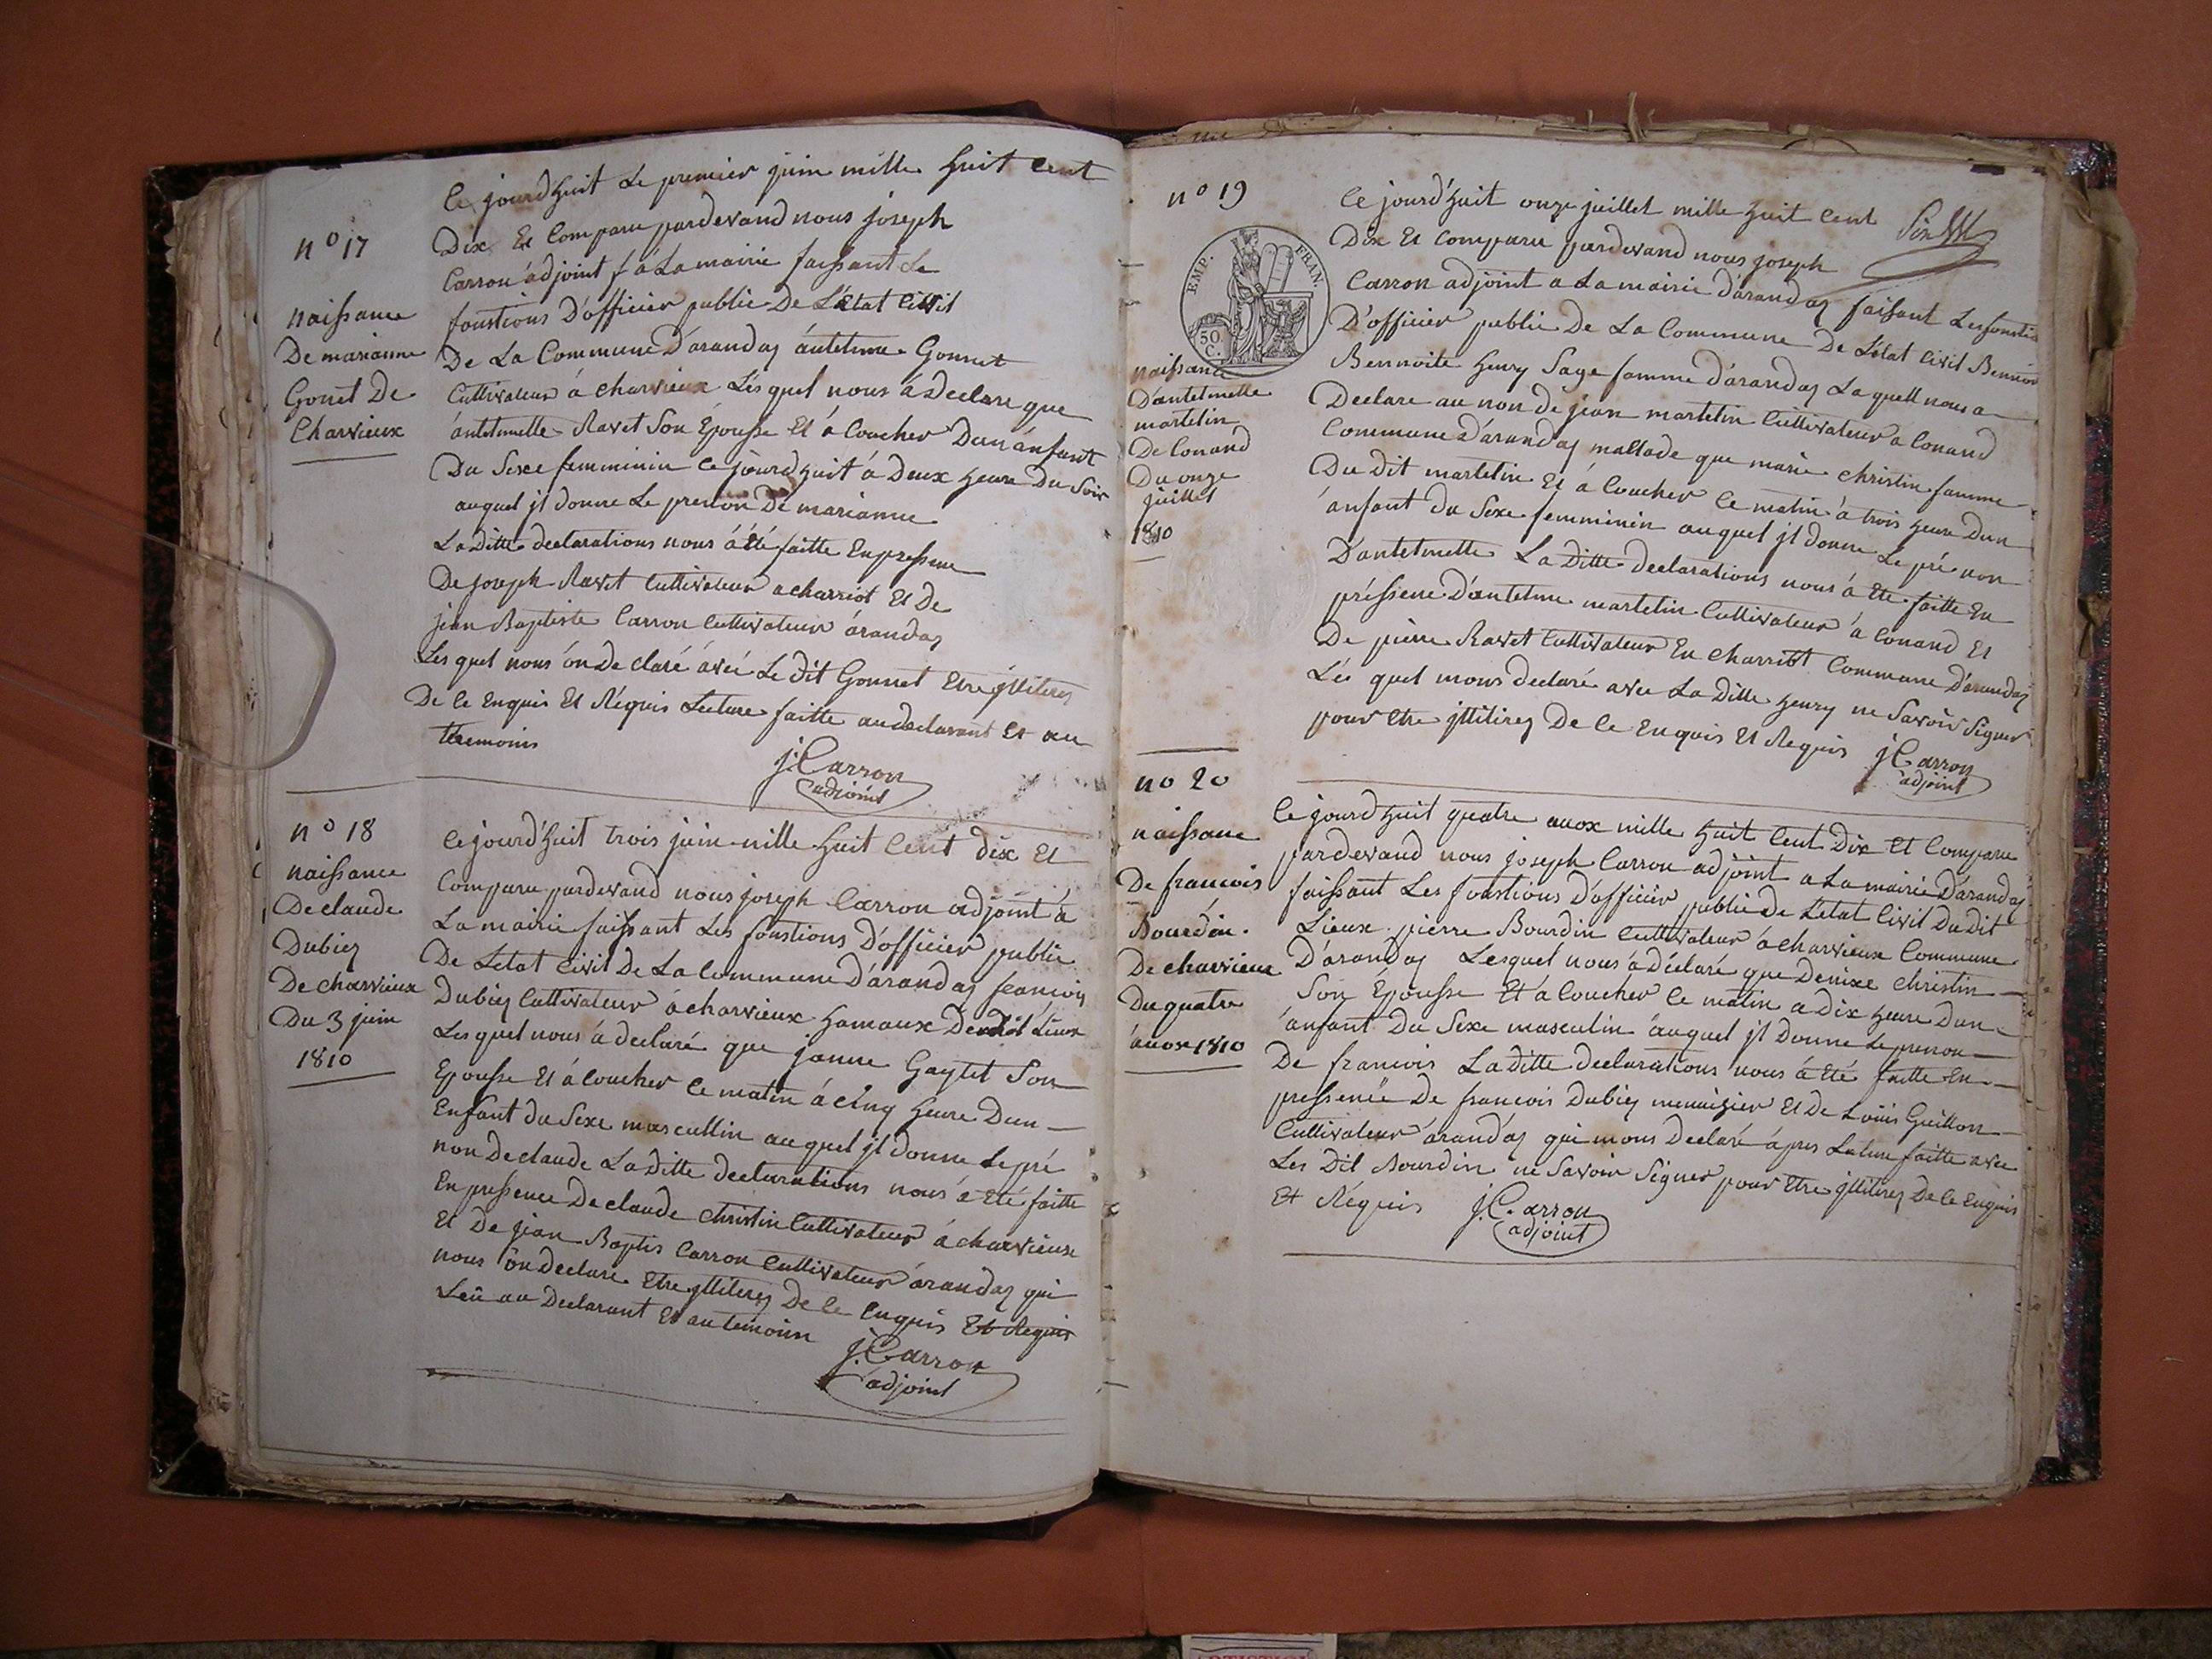 n° 17
naissance
De marianne
Gonet De
Charvieux
Ce jourd'huit Le premier juin mille huit Cent
Dix Et Comparu pardevand nous joseph
Carron adjoint f à La mairie faissant Le
fonstions D'officier public De L'état Civil
De La Commune D'arandas ántelme Gonnet
Cultivateur á Charvieux Lésquel nous á Declare que
ántelmelle Ravet Son Épousse Et á Coucher Dun ánfant
Du Sexe femminin Ce jourd'huit á Deux heure Du Soir
auquel jl donne Le prenon De marianne
La Ditte declarations nous á été faitte En pressence
De joseph Ravet Cultivateur a charriot Et De
jean Baptiste Carron Cultivateur árandas
Les quel nous ón De claré ávec Le Dit Gonnet Etre jllitirez
De Ce Enquis Et Réquis Lecture faitte au declarant Et au
temoins
j. Carron
adjoint
n° 18
naissance
De claude
Dubiez
De charvieux
Du 3 juin
1810
Ce jourd'huit trois juin mille huit Cent dix Et
Comparu pardevand nous joseph Carron adjoint á
La mairie faissant Les fonstions D'officier public
De Letat Civil De La Commune D'arandas francois
Dubiez Cultivateur á charvieux hamaux Dudit Lieux
Les quel nous á declaré que janne Gaytet Son
Epousse Et á Coucher Ce matin á cinq heure Dun
Enfant du Sexe mascullin auquel jl donne Le pré
non De claude La Ditte declarations nous á Eté faitte
En pressence De claude christin Cultivateur á charvieux
Et De jean Baptis Carron Cultivateur árandas qui
nous ón Declare Etre jllitirez De Ce Enquis Et Requis
Leü au Declarant Et au temoin
j. Carron
adjoint
n° 19
EMP. FRAN.
50 C.
naissance
D'antelmelle
martelin
De Conand
Du onze
juillet
1810
Ce jourd'huit onze juillet mille huit Cent
Dix Et Comparu pardevand nous joseph
Carron adjoint a La mairie d'arandas faisant Les fonstion
D'officier public De La Commune De L'état Civil
Bennoite henry Sage famme d'arandas La quell nous a
Declare au non de jean martelin Cultivateur a Conand
Commune D'arandas mallade que marie christin famme
Du Dit martelin Et á Coucher Ce matin á trois heure Dun
ánfant Du Sexe femminin auquel jl donne Le pré non
D'antelmelle La Ditte declarations nous á Eté faitte En
préssence D'antelme martelin Cultivateur á Conand Et
De pierre Ravet Cultivateur En charriot Commune D'arandas
Lés quel mons declaré avec La Ditte henry ne Savoir Signer
pour Etre jllitirez De Ce Enquis Et Requis
j Carron
adjoint
no 20
naissance
De francois
Bourdin.
De charvieux
Du quatre
áuox 1810
Ce jourd'huit quatre auox mille huit Cent Dix Et Comparu
pardevand nous joseph Carron adjoint a La mairie D'arandas
faissant Les fonstions D'officier public De Letat Civil Du Dit
Lieux pierre Bourdin Cultivateur á charvieux Commune
D'arandas Lesquel nous á Déclaré que Denixe christin
Son Épousse Et á Coucher Ce matin a Dix heure Dun
ánfant Du Sexe masculin auquel jl Donne Le prenon
De francois La Ditte declarations nous á Eté faitte En
pressence De francois Dubiez menuizier Et De Louis Guillon
Cultivateur árandas qui mons Declaré ápres Lecture faitte avec
Les Dit Bourdin ne Savoir Signer pour Etre jllitirez De Ce Enquis
Et Réquis
j. Carron
adjoint